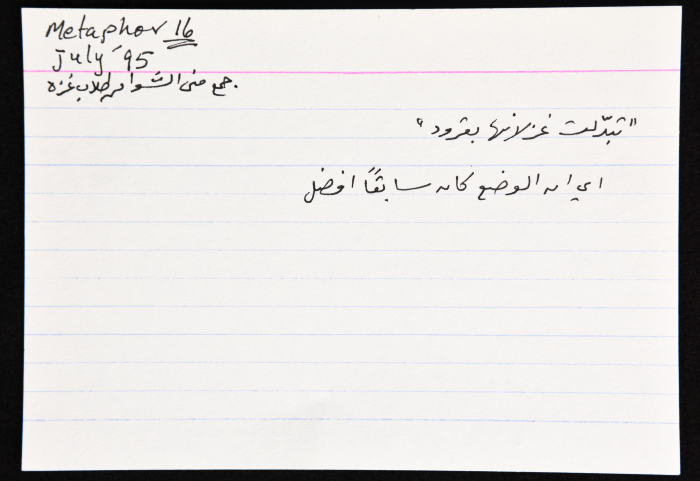 Metaphor 16
July '95
جمع منى الشوا من طلاب غزه.
"تبدّلت غزلانها بقرود"
اي ان الوضع كان سابقًا افضل